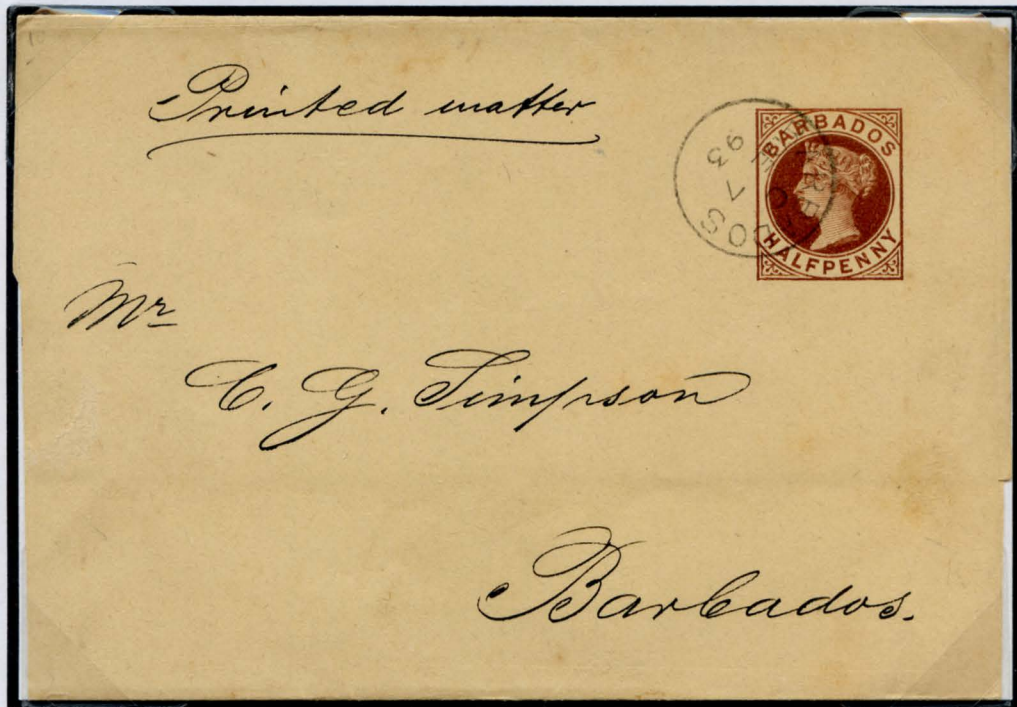 Printed matter
BARBADOS
HALFPENNY
93
7
DOS
Mr
C. G. Simpson
Barbados.